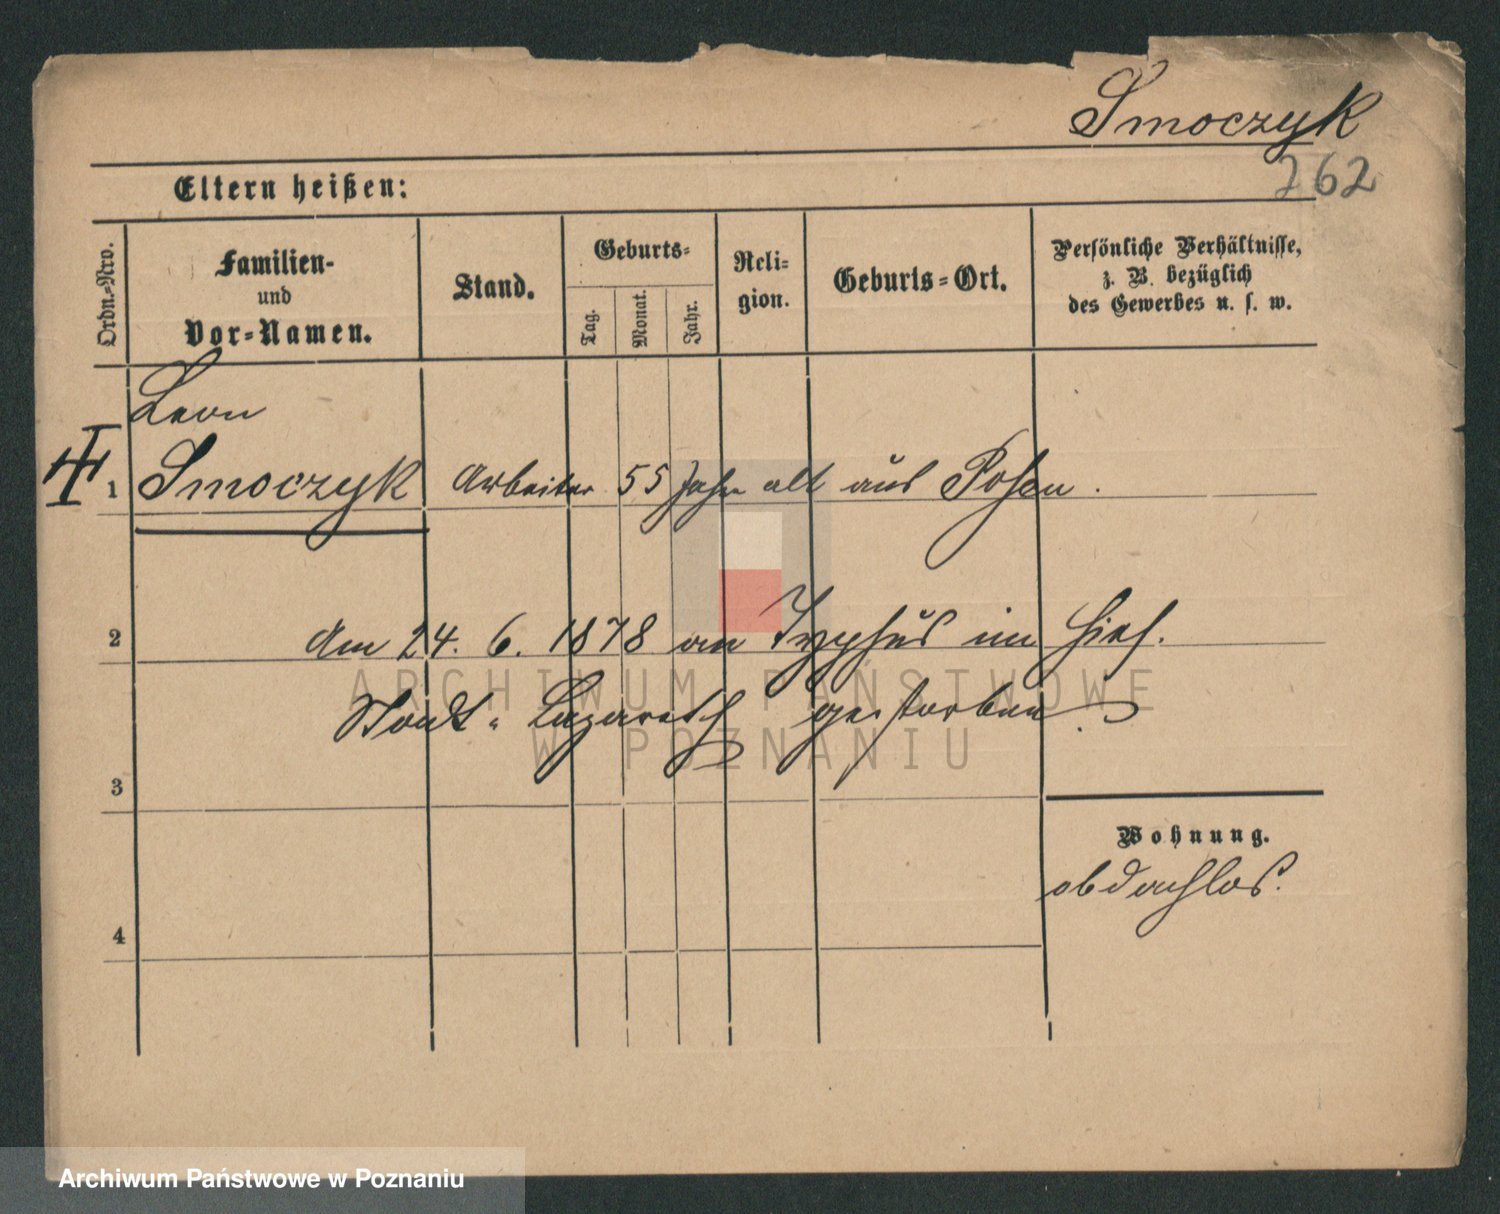 Smoczyk
262
Eltern heißen:
Ordn.-Nro.
Familien-
und
Vor-Namen.
Stand.
Geburts-
Tag.
Monat.
Jahr.
Reli-
gion.
Geburts-Ort.
Persönliche Verhältnisse,
z. B. bezüglich
des Gewerbes u. s. w.
Leon
1 Smoczyk Arbeiter 55 Jahre alt aus Posen.
2 Am 24. 6. 1878 an Typhus im hies.
Stadt-Lazareth gestorben.
3
Wohnung.
obdachlos.
4
ARCHIWUM PAŃSTWOWE
W POZNANIU
Archiwum Państwowe w Poznaniu